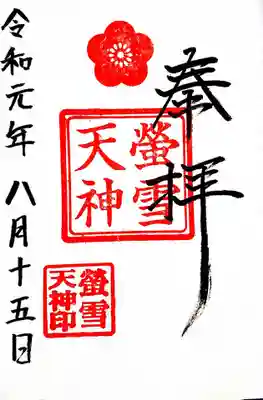 奉拝
螢雪
天神
螢雪
天神印
令和元年 八月十五日